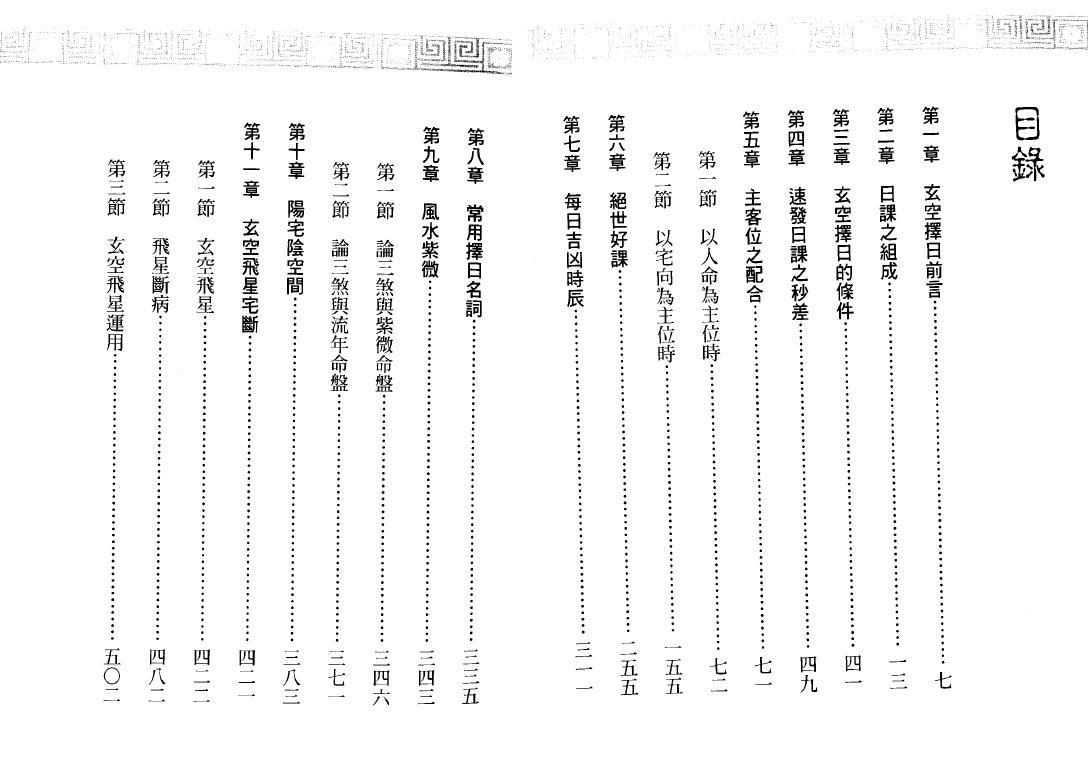 目錄
第一章 玄空擇日前言……七
第二章 日課之組成……一三
第三章 玄空擇日的條件……四一
第四章 速發日課之秒差……四九
第五章 主客位之配合……七一
第一節 以人命為主位時……七二
第二節 以宅向為主位時……一五五
第六章 絕世好課……二五五
第七章 每日吉凶時辰……三一一
第八章 常用擇日名詞……三三五
第九章 風水紫微……三四三
第一節 論三煞與紫微命盤……三四六
第二節 論三煞與流年命盤……三七一
第十章 陽宅陰空間……三八三
第十一章 玄空飛星宅斷……四二一
第一節 玄空飛星……四二二
第二節 飛星斷病……四八二
第三節 玄空飛星運用……五〇二